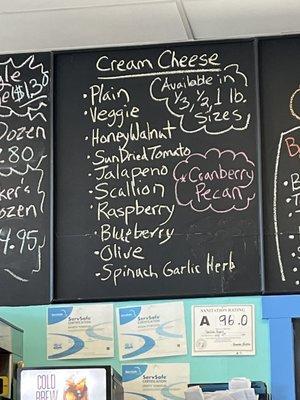 Cream Cheese
Plain
Veggie
Honey Walnut
Sun Dried Tomato
Jalapeno
Scallion
Raspberry
Blueberry
Olive
Spinach Garlic Herb
Available in
1/3, 1/2, 1 lb.
Sizes
*Cranberry
Pecan
Dozen
4.95
ServSafe
CERTIFICATION
ServSafe
CERTIFICATION
SANITATION RATING
A 96.0
ServSafe
COLD
BREW